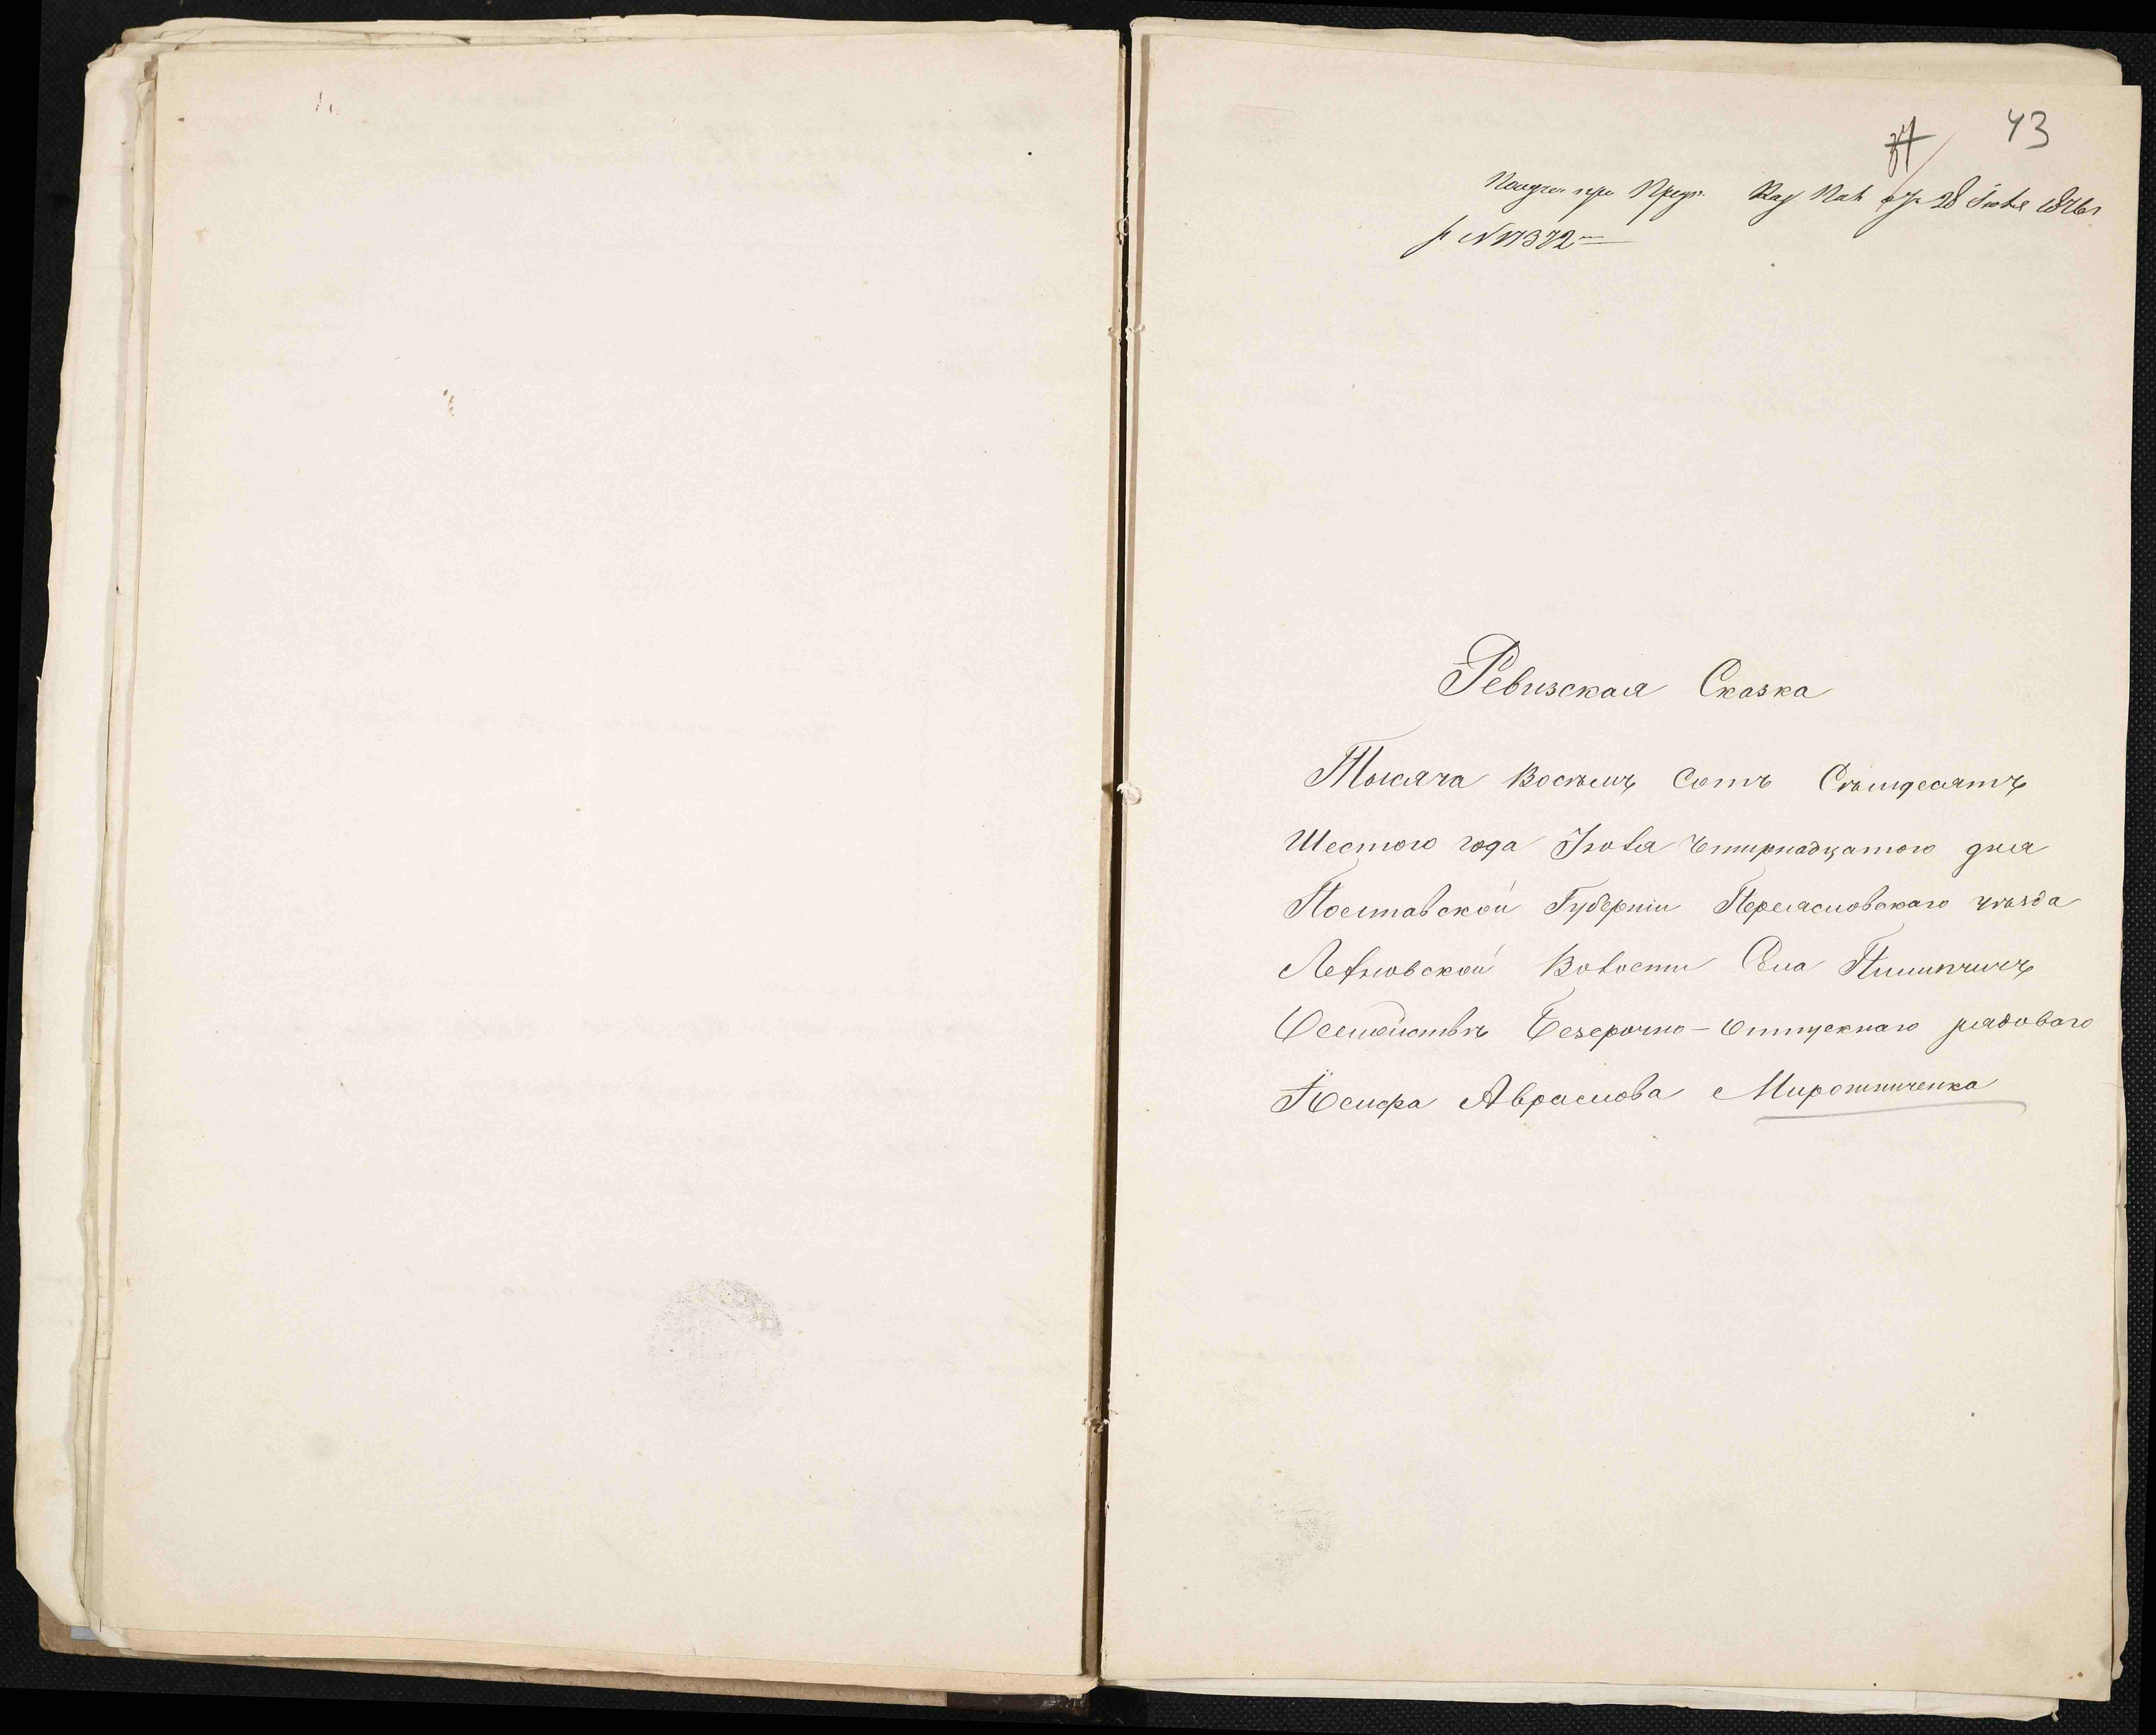 43
Получ. при Предп. Каз Пал отъ 28 Іюля 1876 г
за N 17372
Ревизская Сказка
Тысяча Восѣмъ сотъ Сѣмдесятъ
Шестого года Іюля Чтирнадцатого дня
Полтавской Губерніи Переясловскаго уѣзда
Леҍновской Волости Села Пилипчичъ
Семѣйствѣ Безсрочно-Отпускнаго рядоваго
Іосифа Аврамова Мирошниченка